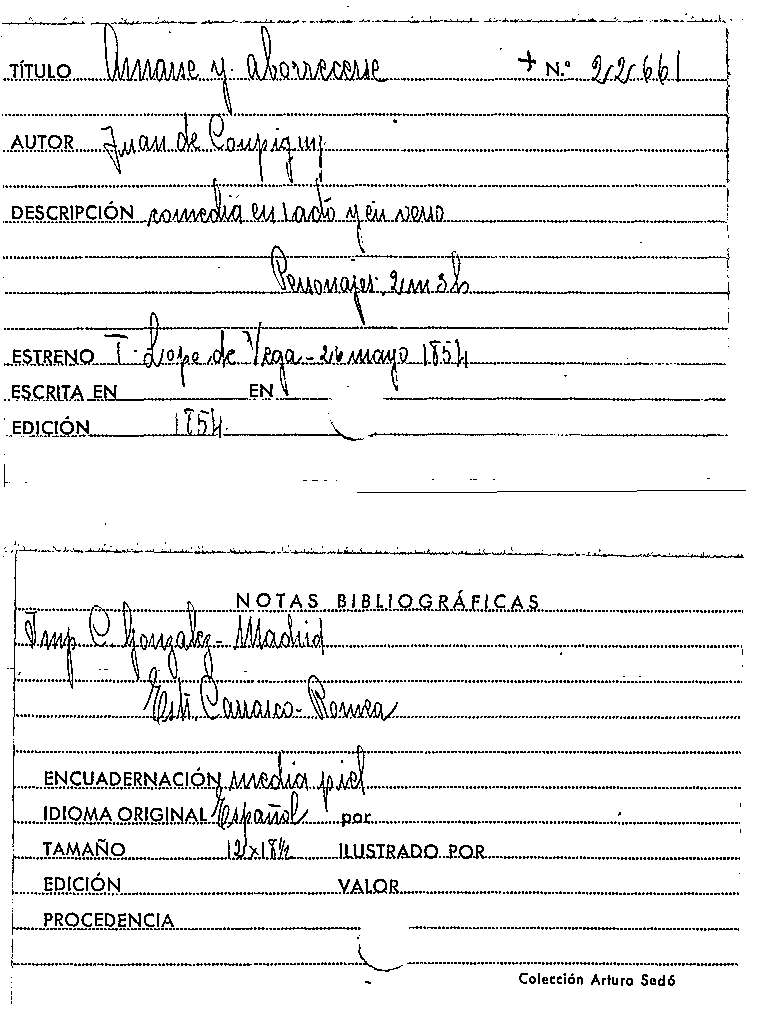 TÍTULO Amarse y aborrecerse + N.º 22661
AUTOR Juan de Coupigny
DESCRIPCIÓN comedia en 1 acto y en verso
Personajes. 2m 3h
ESTRENO T. Lope de Vega - 26 mayo 1854
ESCRITA EN EN
EDICIÓN 1854.
NOTAS BIBLIOGRÁFICAS
Imp C. Gonzalez - Madrid
Est. Carrasco - Romea
ENCUADERNACIÓN media piel
IDIOMA ORIGINAL Español por
TAMAÑO 12x18½ ILUSTRADO POR
EDICIÓN VALOR
PROCEDENCIA
Colección Arturo Sedó